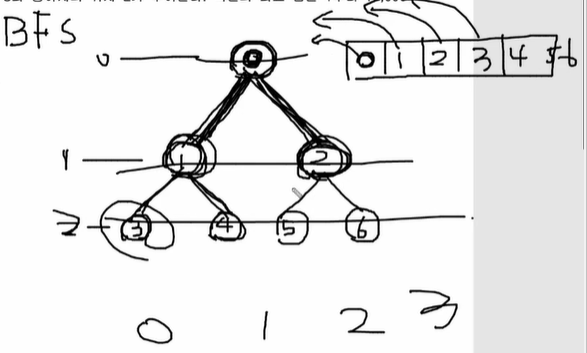 BFS
0
0 1 2 3 4 5 6
0
1
1 2
2
3 4 5 6
0 1 2 3